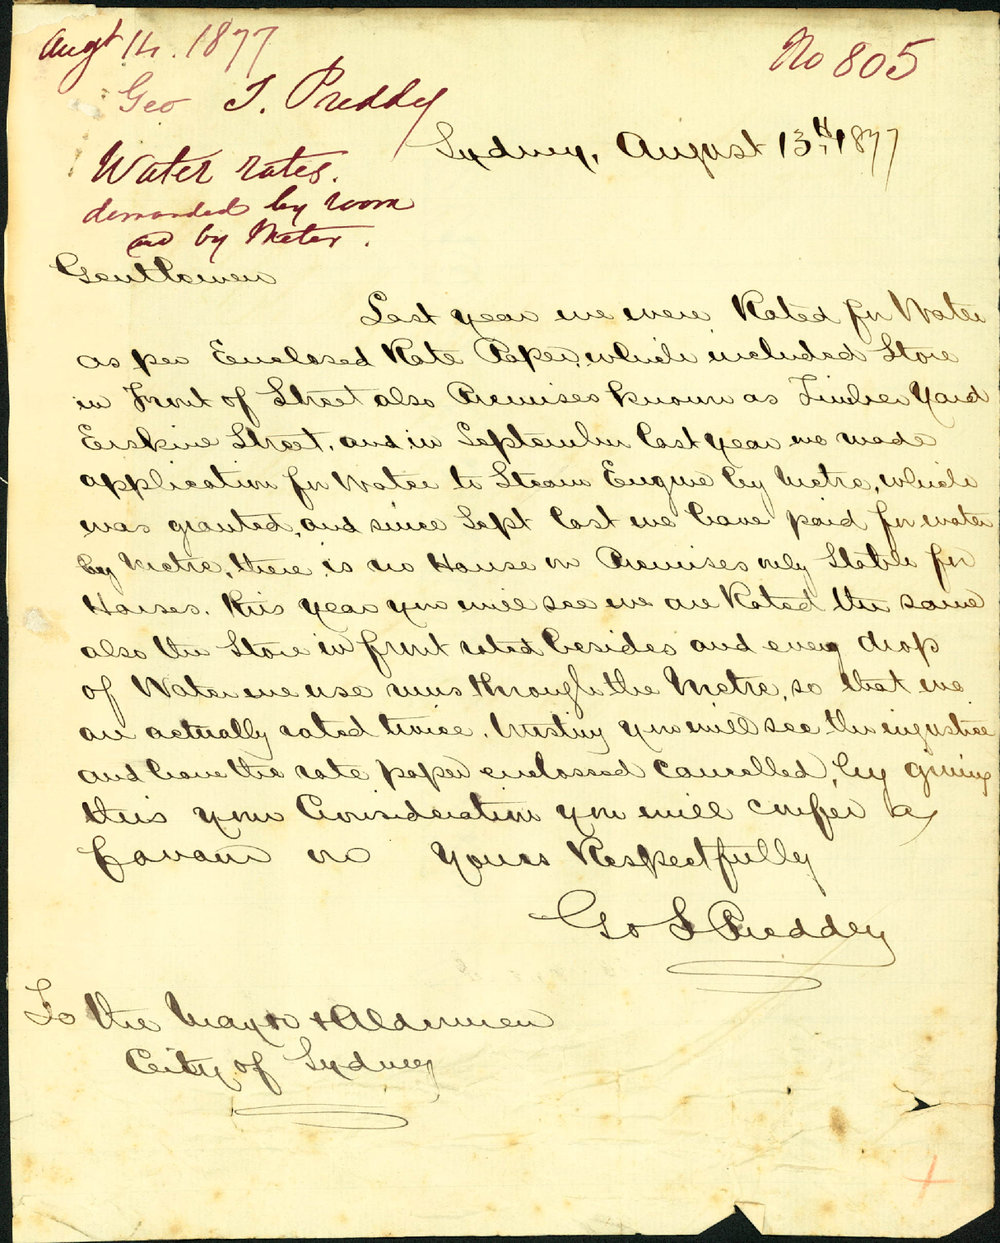 Augt 14. 1877
No 805
Geo S. Preddy
Sydney, August 13th, 1877
Water rates.
demanded by room
and by Meter.
Gentlemen
Last year we were Rated for Water
as per Enclosed Rate Paper, which included Store
in Front of Street also Premises known as Timber Yard
Erskine Street, and in September last year we made
application for Water to Steam Engine by Metre, which
was granted, and since Sept last we have paid for water
by Metre, there is no House on Premises only Stable for
Horses. this year you will see we are Rated the same
also the Store in front rated besides and every drop
of Water we use runs through the Metre, so that we
are actually rated twice. trusting you will see the injustice
and have the rate paper enclosed cancelled, by giving
this your Consideration you will confer a
favour on Yours Respectfully
Geo S Preddey
To the Mayor & Aldermen
City of Sydney